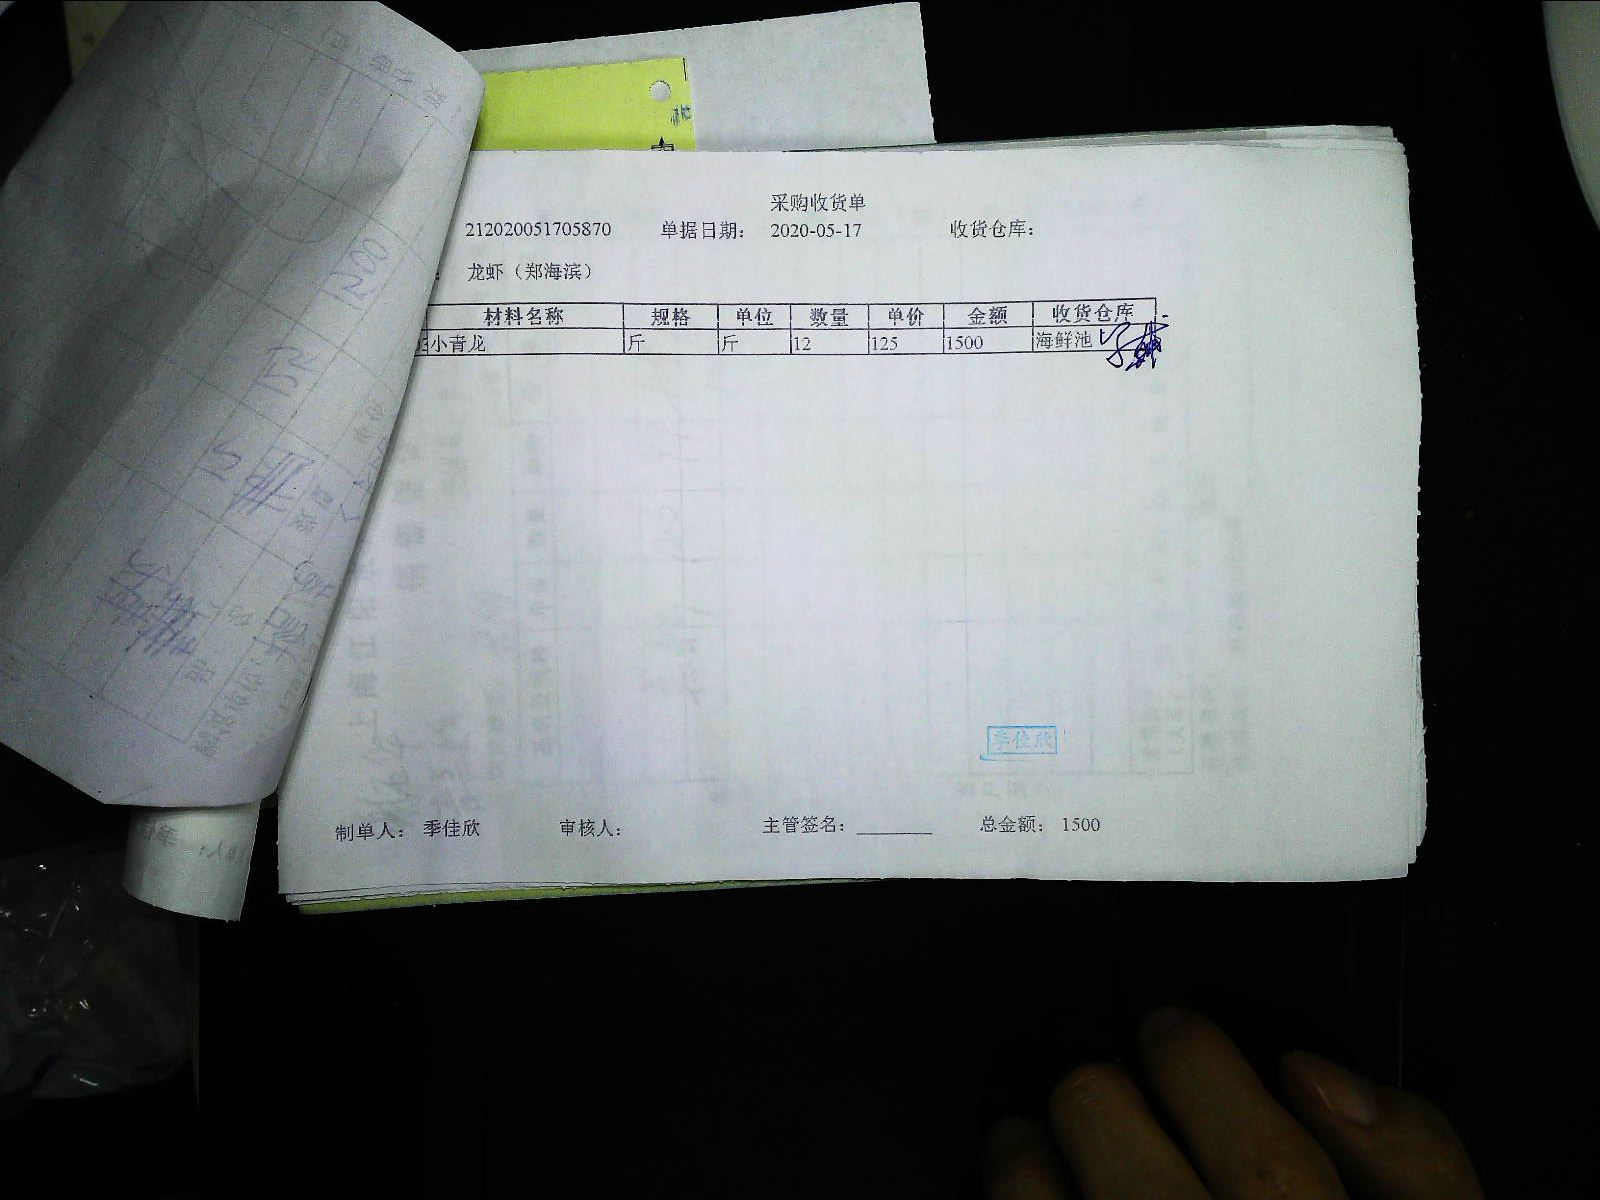 采购收货单
212020051705870 单据日期： 2020-05-17 收货仓库：
： 龙虾（郑海滨）
材料名称 规格 单位 数量 单价 金额 收货仓库
小青龙 斤 斤 12 125 1500 海鲜池
季佳欣
制单人： 季佳欣 审核人： 主管签名： 总金额： 1500